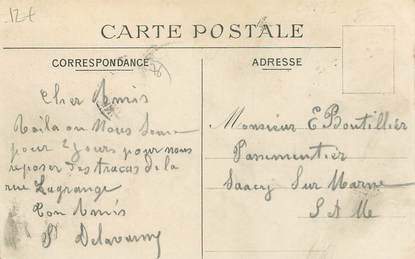 12 €
CARTE POSTALE
CORRESPONDANCE
Cher Amis
Voila ou Nous Somme
pour 2 jours pour nous
reposer des tracas de la
rue Lagrange
Ton Amis
ADRESSE
Monsieur E Boutillier
Passementier
Saacy Sur Marne
S A M